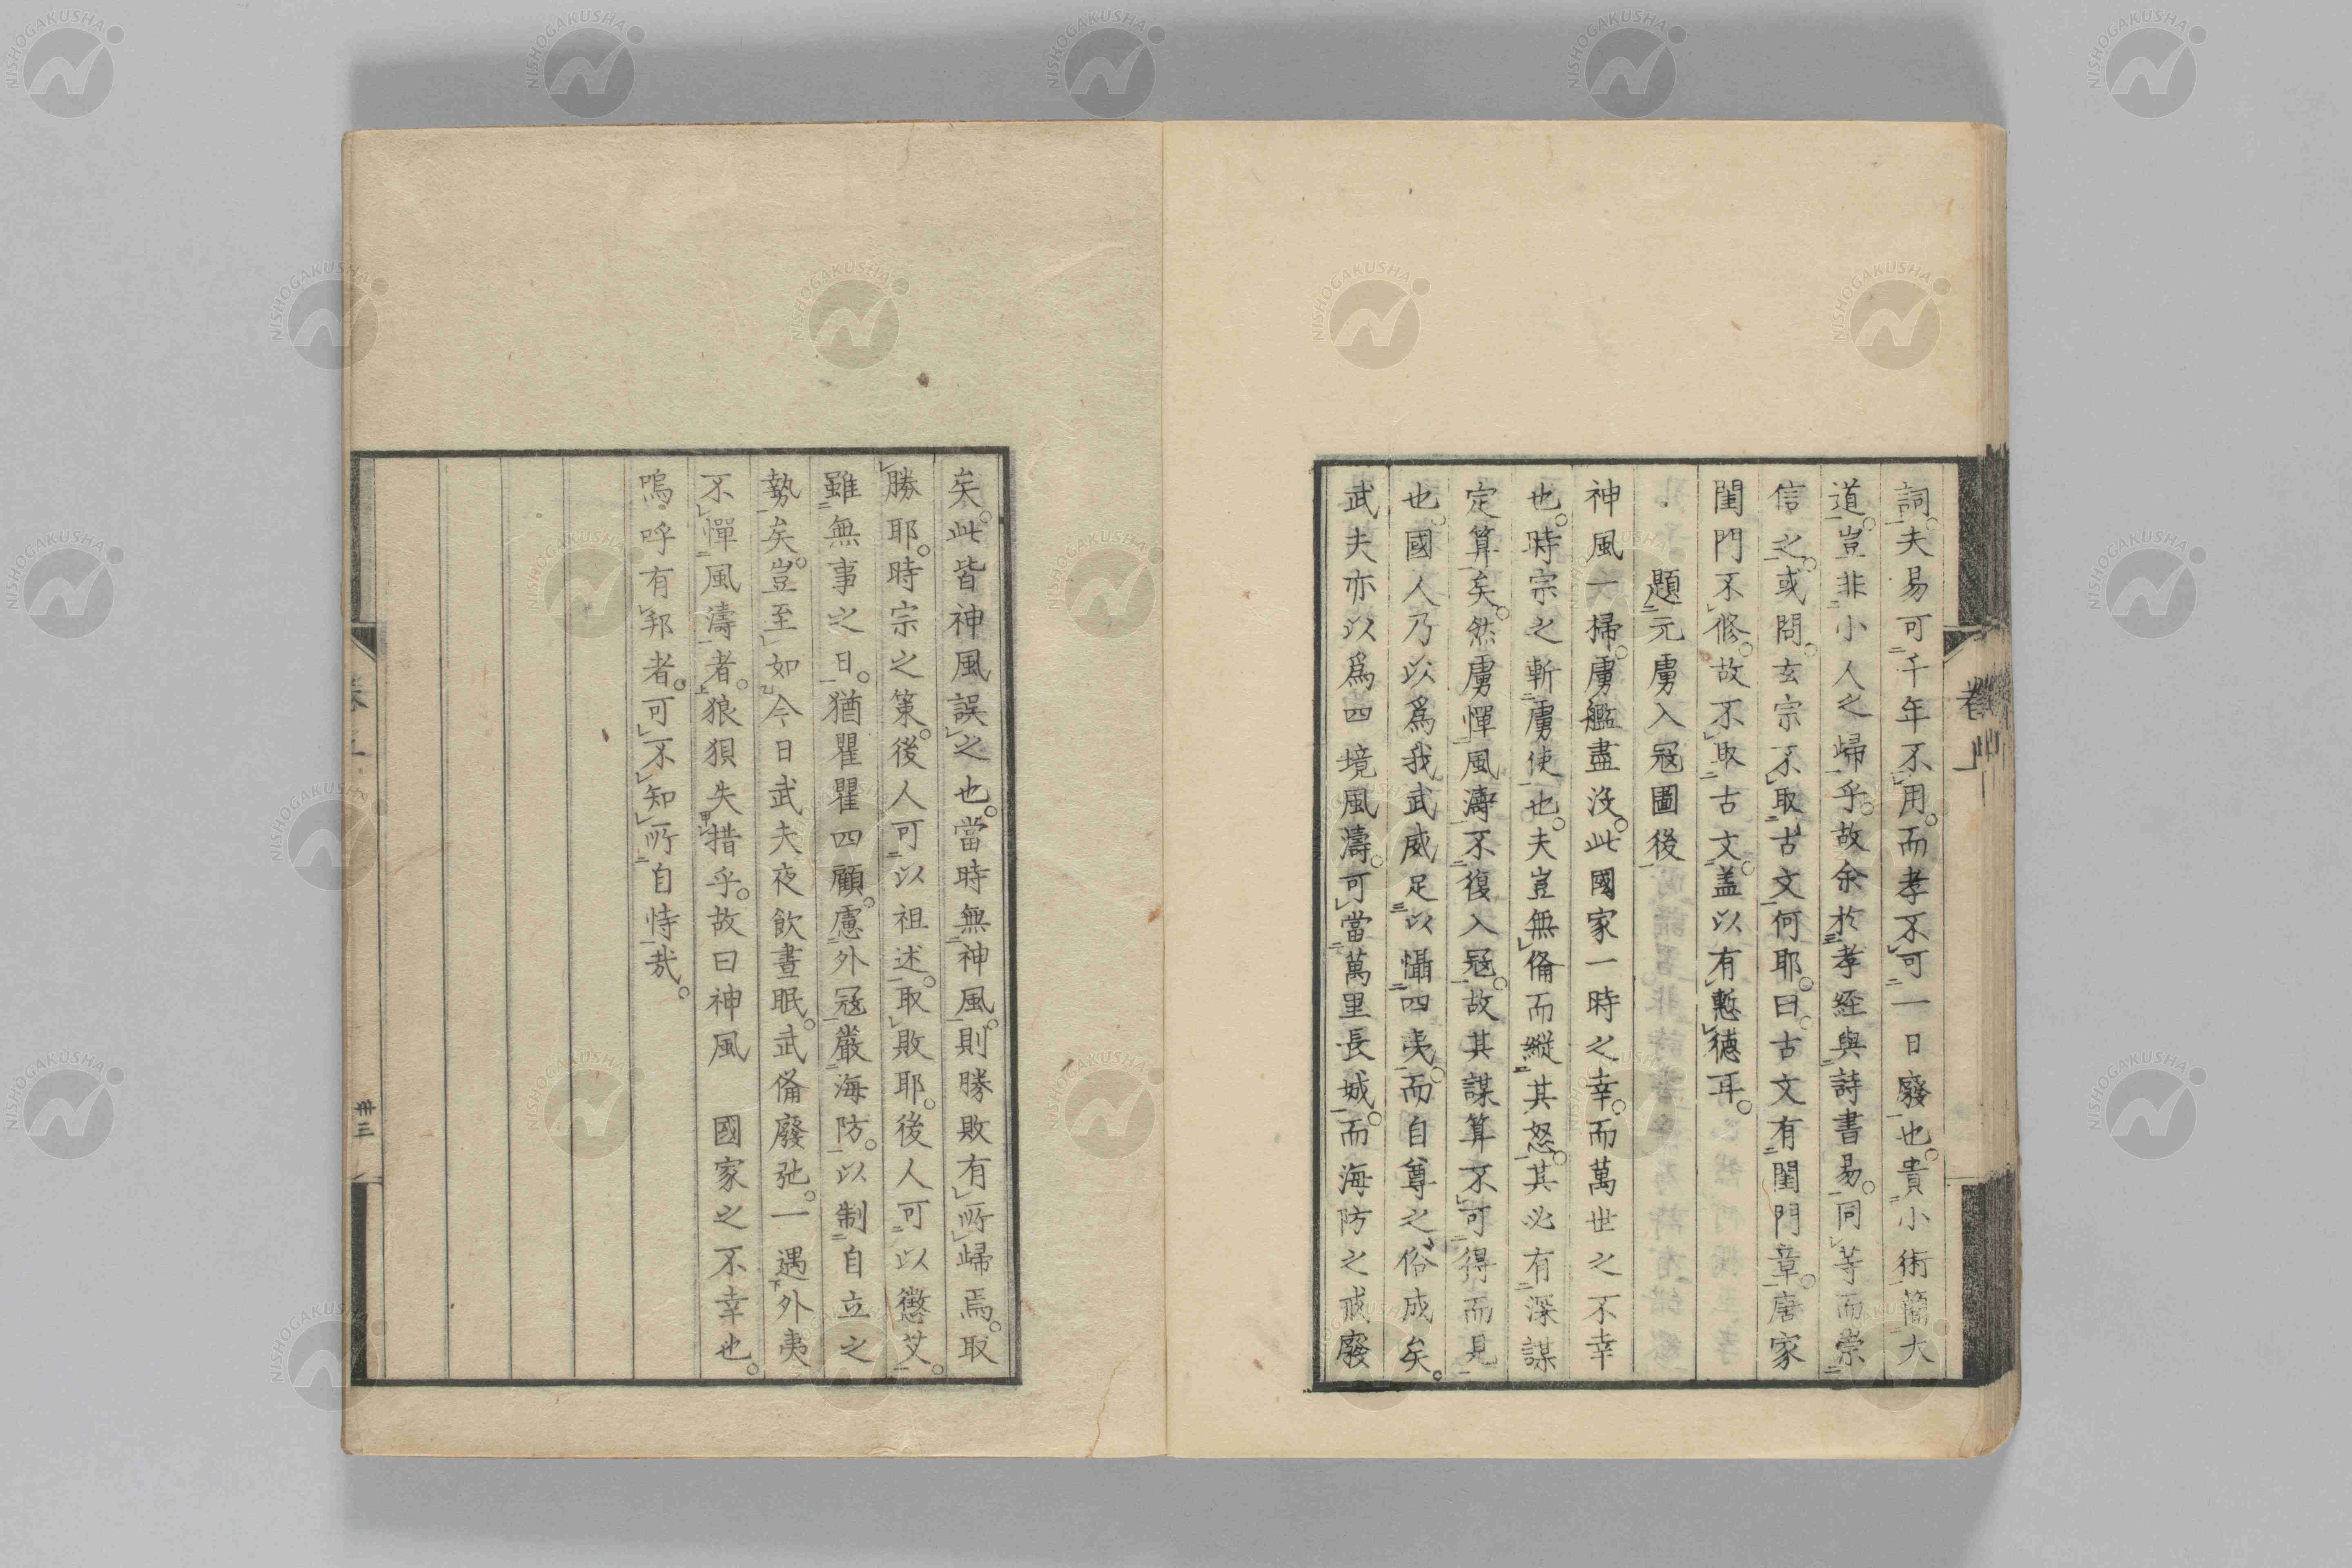 詞。夫易可千年不用。而孝不可一日廢也。貴小術簡大
道。豈非小人之歸乎。故余於孝經與詩書易。同等而崇
信之。或問。玄宗不取古文何耶。曰古文有閨門章。唐家
閨門不修。故不取古文。盖以有慙德耳。
題元虜入冦圖後
神風一掃。虜艦盡沒。此國家一時之幸。而萬世之不幸
也。時宗之斬虜使也。夫豈無俻而縱其怒。其必有深謀
定算矣。然虜憚風濤不復入冦。故其謀算不可得而見
也。國人乃以爲我武威足以懾四夷。而自尊之俗成矣。
武夫亦以爲四境風濤。可當萬里長城。而海防之戒廢
矣。此皆神風誤之也。當時無神風。則勝敗有所歸焉。取
勝耶。時宗之策。後人可以祖述。取敗耶。後人可以懲艾。
雖無事之日。猶瞿瞿四顧。慮外冦嚴海防。以制自立之
勢矣。豈至如今日武夫夜飲晝眠。武俻廢弛。一遇外夷
不憚風濤者。狼狽失措乎。故曰神風 國家之不幸也。
嗚呼有邦者。可不知所自恃哉。
卷上
卅三
NISHOGAKUSHA